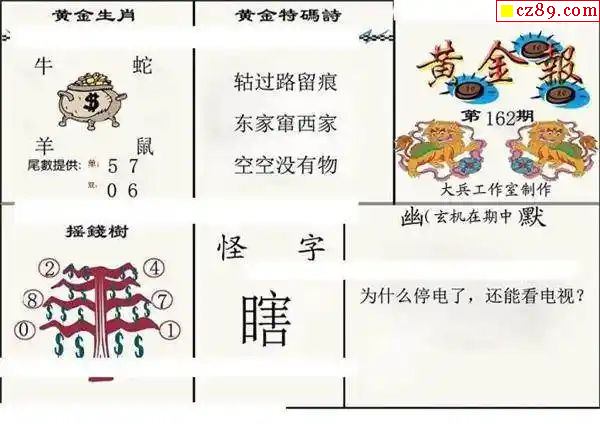 黄金生肖
牛 蛇
羊 鼠
尾數提供: 单: 5 7
双: 0 6
黄金特碼詩
轱过路留痕
东家窜西家
空空没有物
cz89.com
黄金報
第162期
大兵工作室制作
摇錢樹
2 4
8 7
0 1
怪字
瞎
幽(玄机在期中)默
为什么停电了，还能看电视？